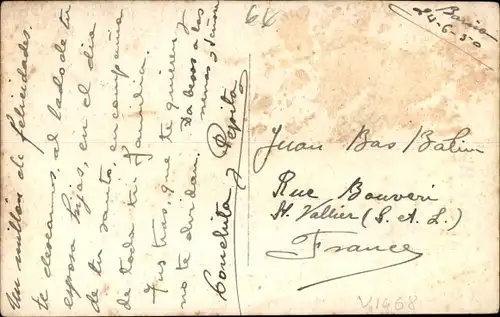 Un millón de felicidades
te deseamos, al lado de tu
esposa hijas, en el dia
de tu santo en compañia
de toda tu familia.
Tus tias, que te quieren y
no te olvidan.
Da besos a las
nenas y
Conchita y Pepita
66
24-6-50
Juan Bas Balin
Rue Bouveri
St. Vallier (S. et. L.)
France
V1468